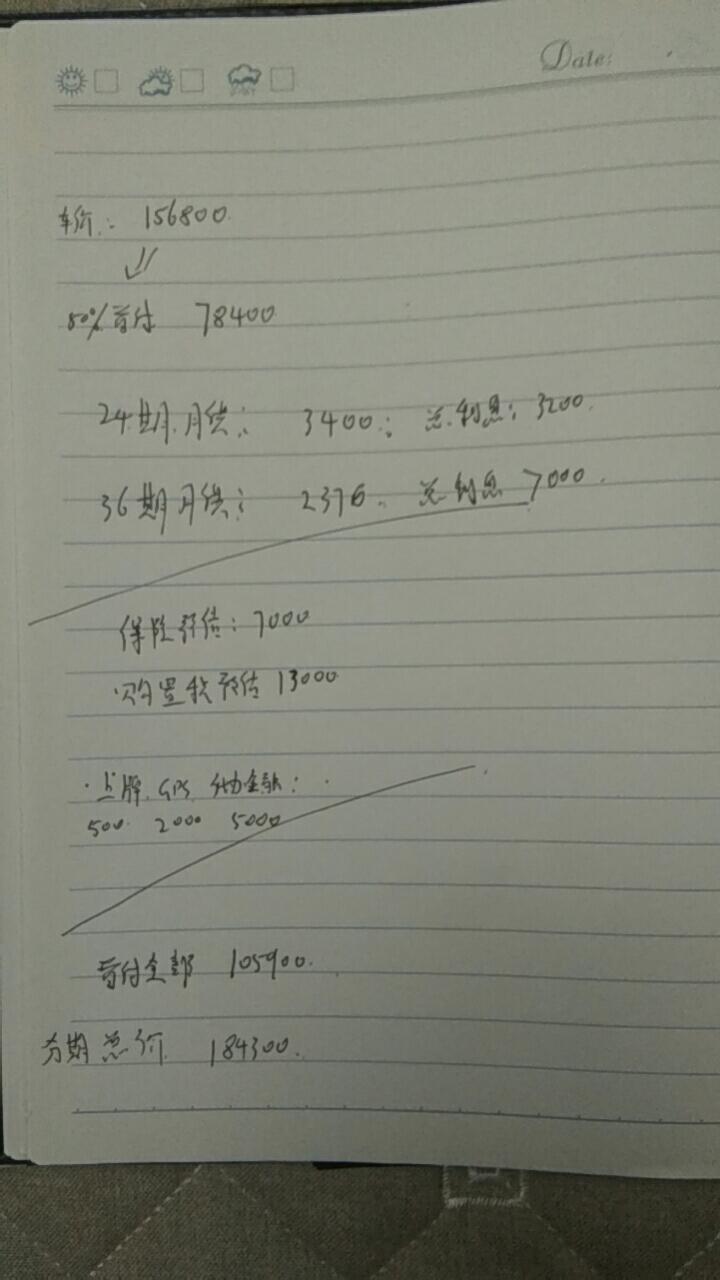 Date:
车价: 156800.
50%首付 78400
24期月供: 3400.; 总利息: 3200.
36期月供: 2376. 总利息 7000.
保险预估: 7000
购置税预估 13000
上牌. GPS
500 2000 5000
首付全部 105900.
分期总价 184300.